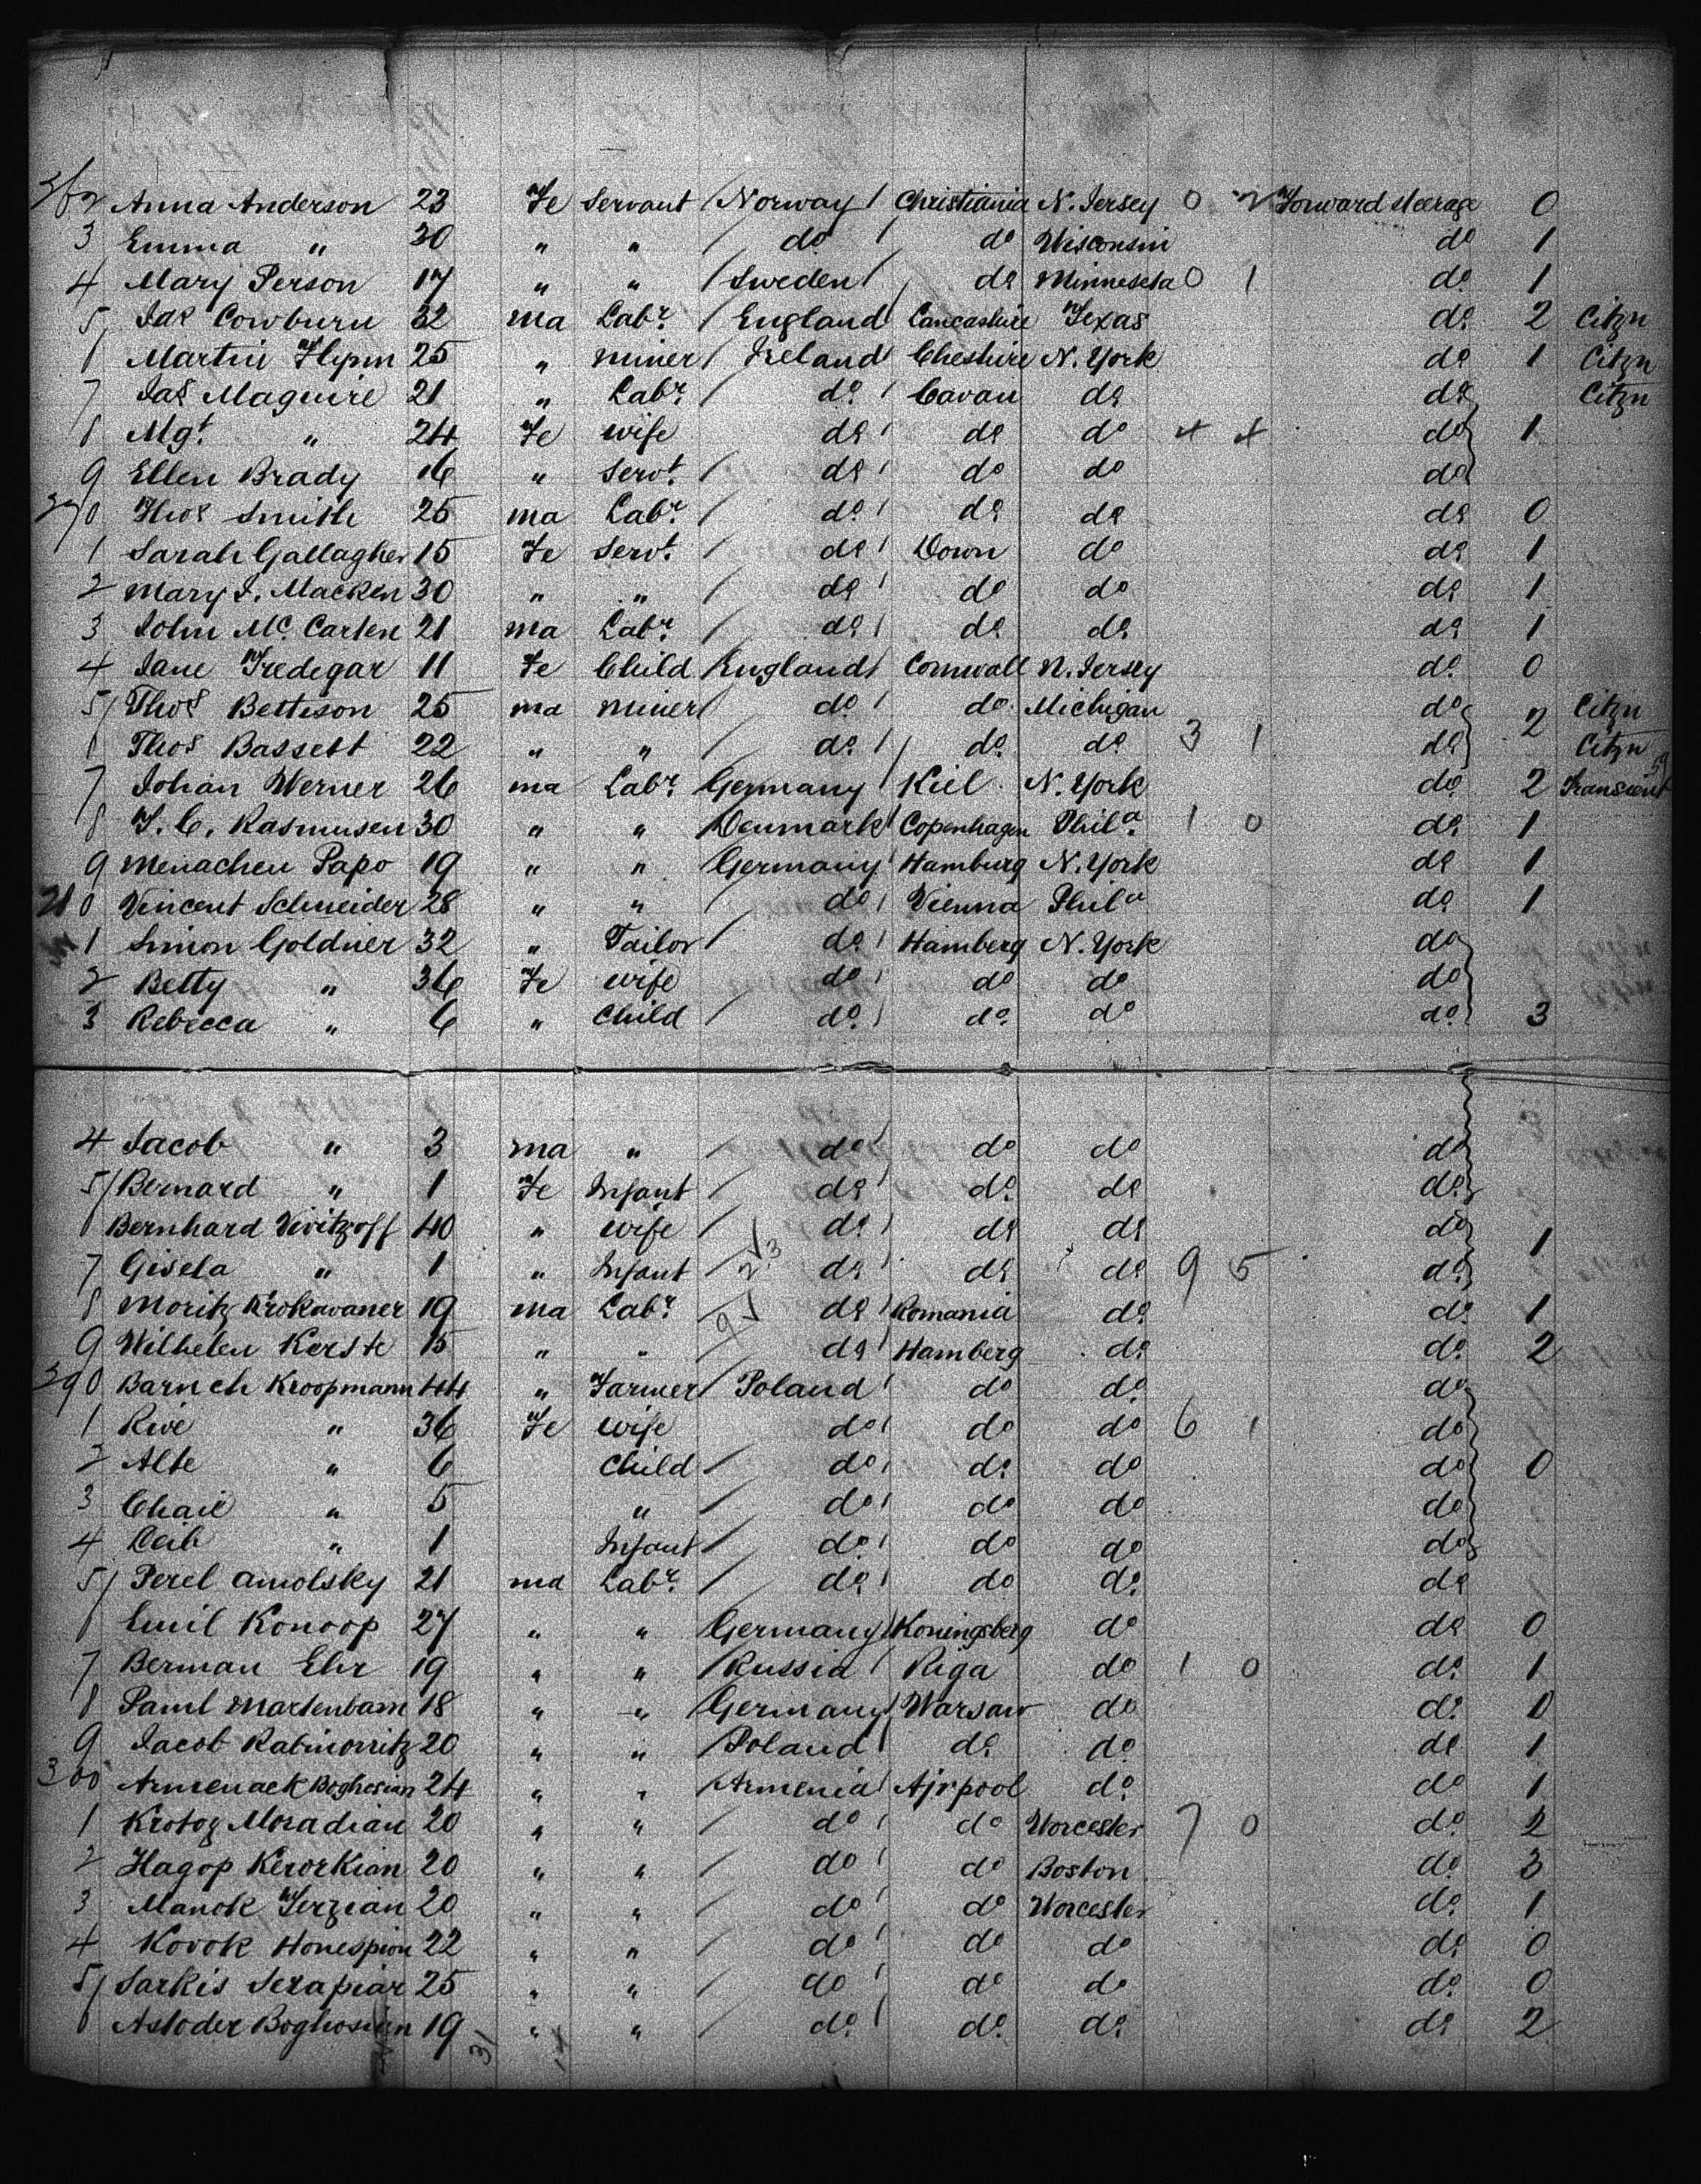 362 Anna Anderson 23 Fe Servant / Norway / Christiania N. Jersey 0 2 Forward steerage 0
3 Emma " 30 " " / do / do Wisconsin do 1
4 Mary Person 17 " " / Sweden / do Minnesota 0 1 do 1
5 Jas Cowburn 32 ma Labr. / England Lancashire Texas do 2 Citzn
6 Martin Flynn 25 " miner / Ireland Cheshire N. York do 1 Citzn
7 Jas Maguire 21 " Labr. / do Cavan do do Citzn
8 Mgt. " 24 Fe wife do do do 4 4 do 1
9 Ellen Brady 16 " Servt. / do do do do
370 Thos Smith 25 ma Labr. / do do do do 0
1 Sarah Gallagher 15 Fe Servt. / do Down do do 1
2 Mary J. Macken 30 " " / do do do do 1
3 John McCarten 21 ma Labr. / do do do do 1
4 Jane Tredegar 11 Fe Child England Cornwall N. Jersey do 0
5 Thos Bettison 25 ma miner do do Michigan do 2 Citzn
6 Thos Bassett 22 " " / do do do 3 1 do Citzn
7 Johan Werner 26 ma Labr. Germany Kiel N. York do 2 Transient
8 J. C. Rasmusen 30 " " Denmark Copenhagen Phila. 1 0 do 1
9 Menachen Papo 19 " " Germany Hamburg N. York do 1
0 Vincent Schneider 28 " " / do Vienna Phila do 1
1 Simon Goldner 32 " Tailor / do Hamberg N. York do
2 Betty " 36 Fe wife do do do do
3 Rebecca " 6 " Child / do do do do 3
4 Jacob " 3 ma " / do do do do
5 Bernard " 1 Fe Infant / do do do do
6 Bernhard Vivitzoff 40 " wife / do do do do 1
7 Gisela " 1 " Infant / do do do 9 5 do
8 Moritz Krokavaner 19 ma Labr. do Romania do do 1
9 Wilhelen Kerste 15 " " / do Hamberg do do 2
390 Barnch Kroopmann 44 " Farmer / Poland do do do
1 Rive " 36 Fe wife do do do 6 1 do
2 Alte " 6 Child / do do do do 0
3 Chaie " 5 " / do do do do
4 Leib " 1 Infant / do do do do
5 Perel Amolsky 21 ma Labr. / do do do do
6 Emil Konoop 27 " " / Germany Koningsberg do do 0
7 Berman Ehr 19 " " / Russia Riga do 1 0 do 1
8 Paul Martenbam 18 " " / Germany Warsaw do do 0
9 Jacob Rabinowitz 20 " " / Poland do do do 1
300 Armenack Boghosian 24 " " / Armenia Ajrpool do do 1
1 Krotoz Moradian 20 " " / do do Worcester 7 0 do 2
2 Hagop Kevorkian 20 " " / do do Boston do 3
3 Manok Terzian 20 " " / do do Worcester do 1
4 Kovok Honespion 22 " " / do do do do 0
5 Sarkis Serapiar 25 " " / do do do do 0
6 Astoder Boghosian 19 " " / do do do do 2